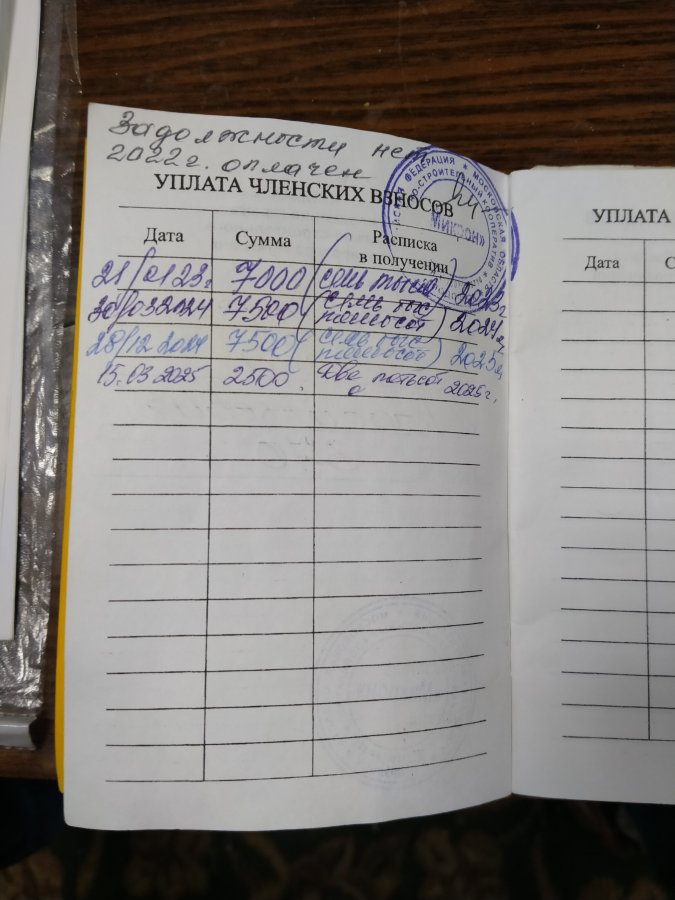 Задолжности нет
2022г. оплачен
УПЛАТА ЧЛЕНСКИХ ВЗНОСОВ
Дата Сумма Расписка в получении
21/0123г. 7000 (семь тысяч) 2023г
30/032024 7500 (семь тыс пятьсот) 2024г,
28/12 2024 7500 (семь тыс пятьсот) 2025г,
15.03 2025 2500. Две 2025г,
ФЕДЕРАЦИЯ * МОСКОВСКАЯ ОБЛАС
О-СТРОИТЕЛЬНЫЙ КООПЕРАТИВ
УПЛАТА
Дата С